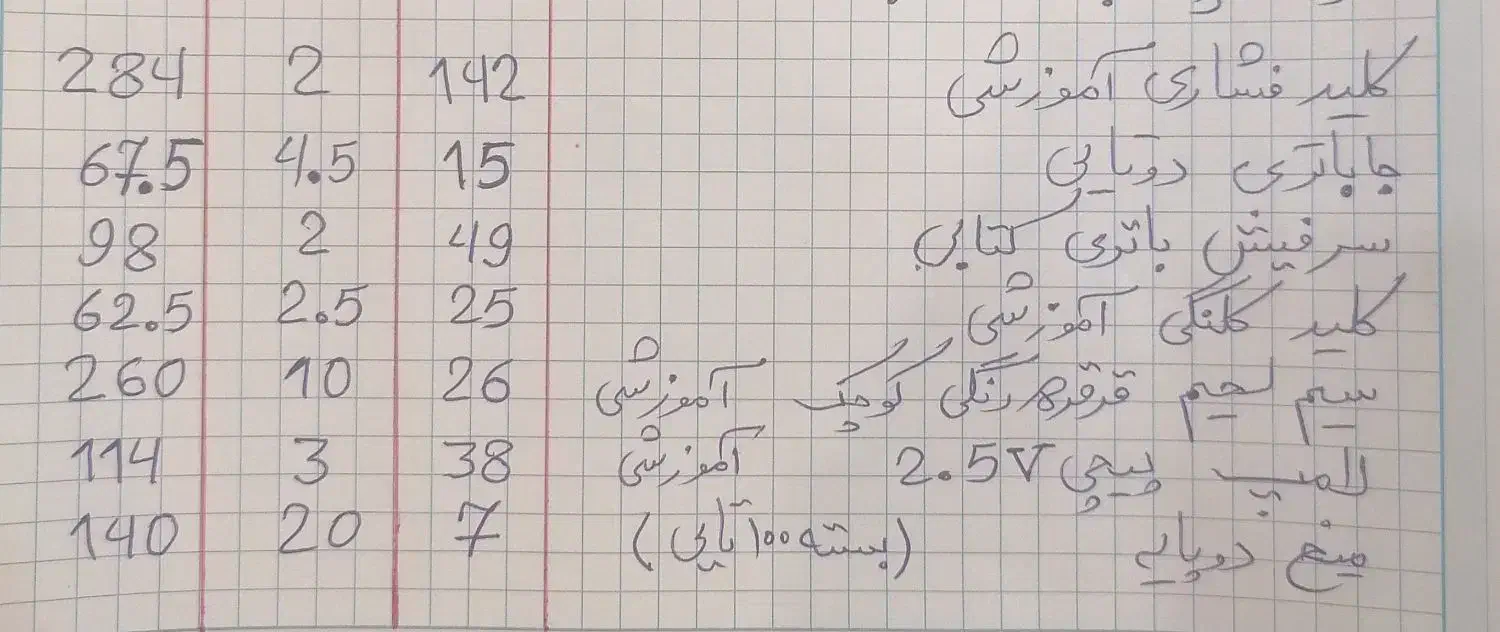 کلید فشاری آموزشی 142 2 284
جا باتری دوتایی 15 4.5 67.5
سرفیش باتری کتابی 49 2 98
کلید کلنگی آموزشی 25 2.5 62.5
سیم لحیم قرقره رنگی کوچک آموزشی 26 10 260
لامپ پیچی 2.5V آموزشی 38 3 114
میخ دوپایه (بسته ۱۰۰ تایی) 7 20 140